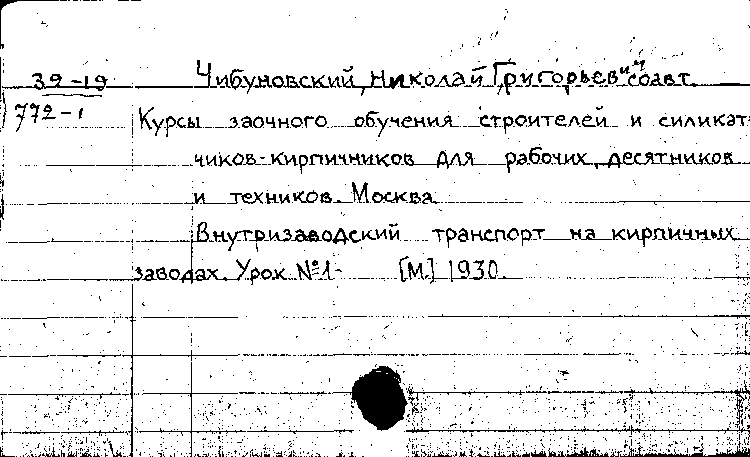 39-19
Чибуновский, Николай Григорьевич соавт.
772-1
Курсы заочного обучения строителей и силикат-
чиков-кирпичников для рабочих, десятников
и техников. Москва.
Внутризаводский транспорт на кирпичных
заводах. Урок №1- [М.] 1930.